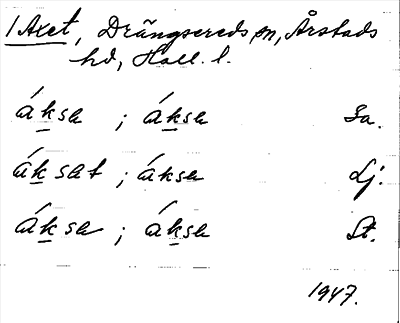 1 Axet, Drängsereds sn, Årstads
hd, Hall. l.
áksa ; áksa Sa.
áksat ; áksa Lj.
áksa ; áksa St.
1947.